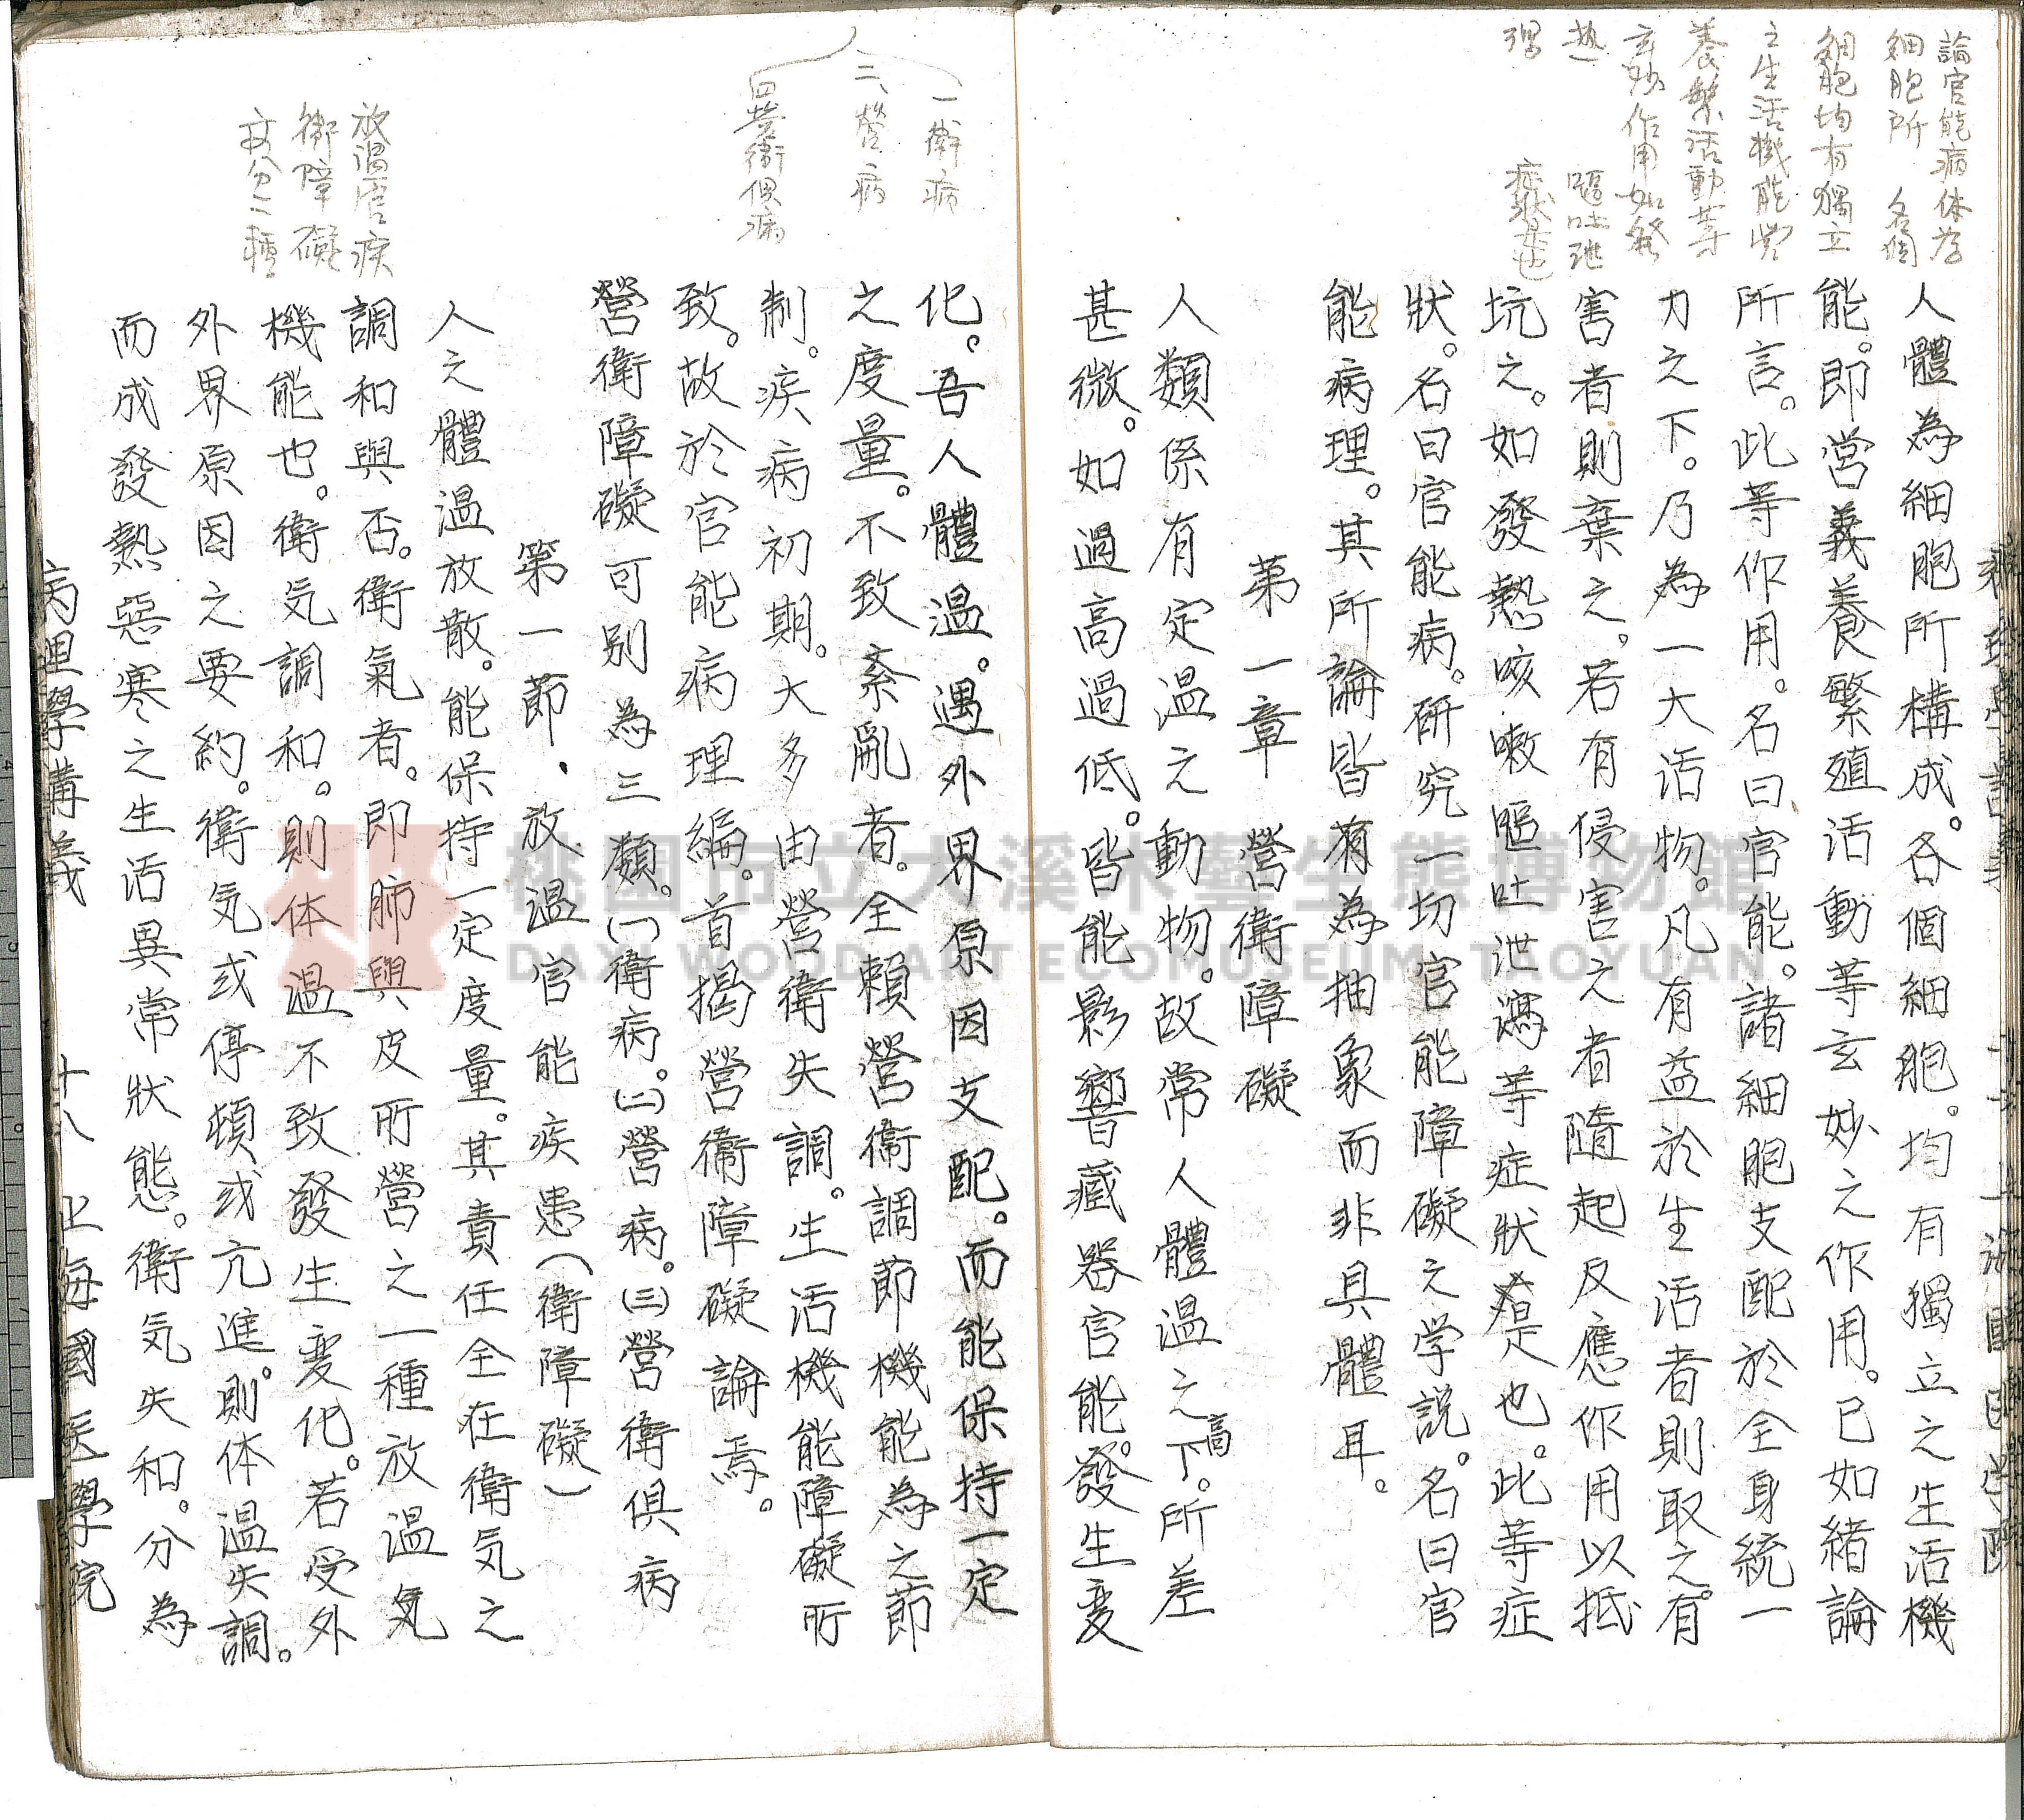 論官能病体為
細胞所　各個
細胞均有獨立
之生活機能營
養繁活動等
玄妙作用如發
熱　嘔吐泄
症狀是也
人體為細胞所構成。各個細胞。均有獨立之生活機
能。即營義養繁殖活動等玄妙之作用。已如緒論
所言。此等作用。名曰官能。諸細胞支配於全身統一
力之下。乃為一大活物。凡有益於生活者則取之。有
害者則棄之。若有侵害之者隨起反應作用以抵
坑之。如發熱咳嗽嘔吐泄瀉等症狀是也。此等症
狀。名曰官能病。研究一切官能障礙之学説。名曰官
能病理。其所論皆有為抽象而非具體耳。
第一章　營衛障礙
人類係有定溫之動物。故常人體溫之高下。所差
甚微。如過高過低。皆能影響藏器官能。發生變
一衛病
二、營病
四營衛俱病
放溫官疾
衛障礙
故分二種
化。吾人體溫。遇外界原因支配。而能保持一定
之度量。不致紊亂者。全賴營衛調節機能為之節
制。疾病初期。大多由營衛失調。生活機能障礙所
致。故於官能病理編。首揭營衛障礙論焉。
營衛障礙可別為三類。(一)衛病。(二)營病。(三)營衛俱病
第一節．放溫官能疾患(衛障礙)
人之體溫放散。能保持一定度量。其責任全在衛気之
調和與否。衛氣者。即肺與皮所營之一種放溫気
機能也。衛気調和。則体溫不致發生變化。若受外
外界原因之要約。衛気或停頓或亢進。則体溫失調。
而成發熱惡寒之生活異常狀態。衛気失和。分為
病理學講義　十八　上海國医學院
桃園市立大溪木藝生態博物館
DAXI WOOD ART ECOMUSEUM, TAOYUAN